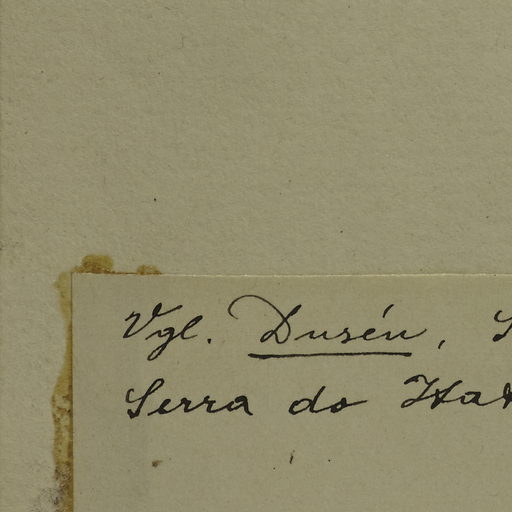 Vgl. Dusén, S
Serra do Itat